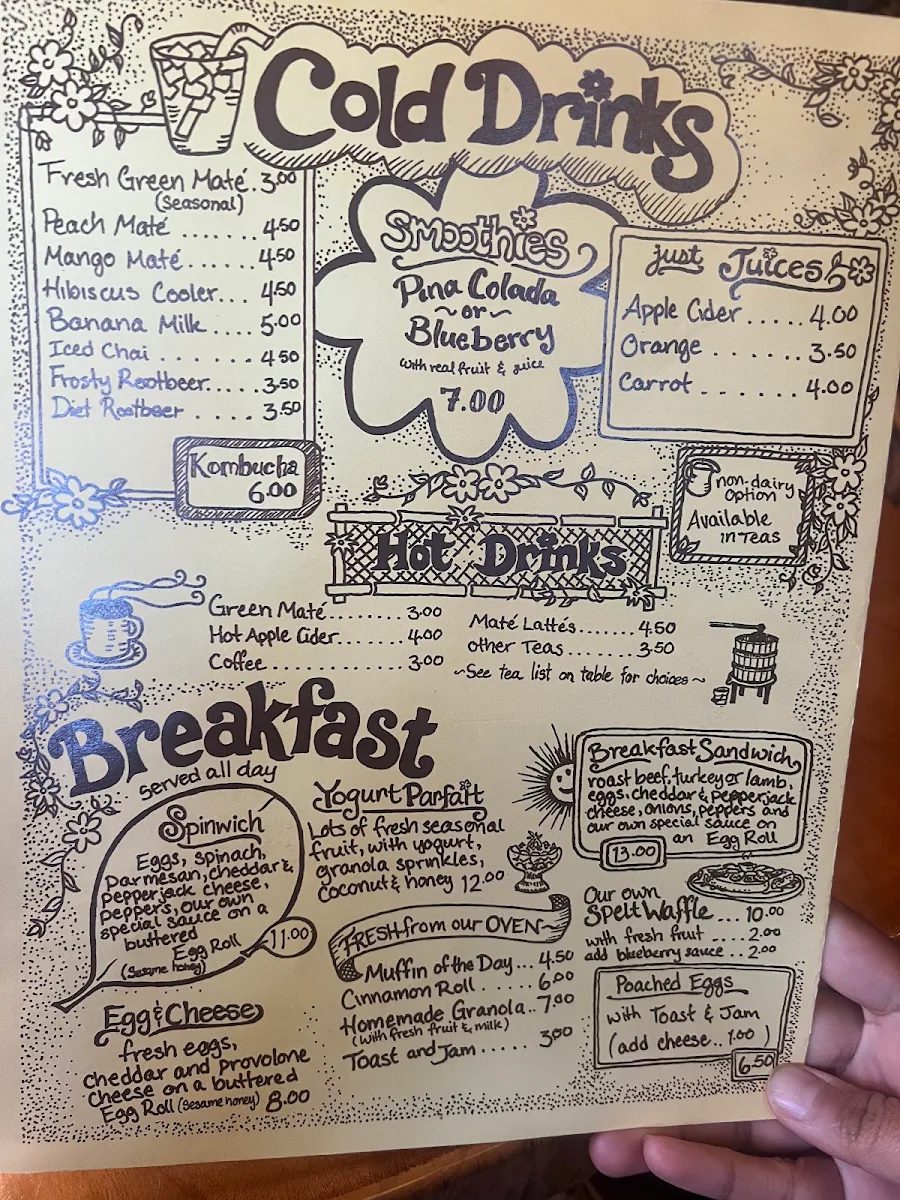 Cold Drinks
Fresh Green Maté. 3.00
(Seasonal)
Peach Maté ....... 4.50
Mango Maté...... 4.50
Hibiscus Cooler... 4.50
Banana Milk .... 5.00
Iced Chai ....... 4.50
Frosty Rootbeer..... 3.50
Diet Rootbeer .... 3.50
Kombucha
6.00
Smoothies
Pina Colada
~or~
Blueberry
with real fruit & juice
7.00
Just Juices
Apple Cider ..... 4.00
Orange ....... 3.50
Carrot ....... 4.00
non-dairy
option
Available
in Teas
Hot Drinks
Green Maté......... 3.00
Hot Apple Cider........ 4.00
Coffee............... 3.00
Maté Lattés....... 4.50
other Teas....... 3.50
~See tea list on table for choices~
Breakfast
served all day
Spinwich
Eggs, spinach,
parmesan, cheddar &
pepperjack cheese,
peppers, our own
special sauce on a
buttered
Egg Roll
(Sesame honey)
11.00
Egg & Cheese
fresh eggs,
cheddar and provolone
cheese on a buttered
Egg Roll (Sesame honey) 8.00
Yogurt Parfait
Lots of fresh seasonal
fruit, with yogurt,
granola sprinkles,
coconut & honey 12.00
FRESH from our OVEN
Muffin of the Day... 4.50
Cinnamon Roll ...... 6.00
Homemade Granola.. 7.00
(with fresh fruit & milk)
Toast and Jam ..... 3.00
Breakfast Sandwich
roast beef, turkey or lamb,
eggs, cheddar & pepperjack
cheese, onions, peppers and
our own special sauce on
an Egg Roll
13.00
Our own
Spelt Waffle... 10.00
with fresh fruit .... 2.00
add blueberry sauce .. 2.00
Poached Eggs
with Toast & Jam
(add cheese.. 1.00 )
6.50